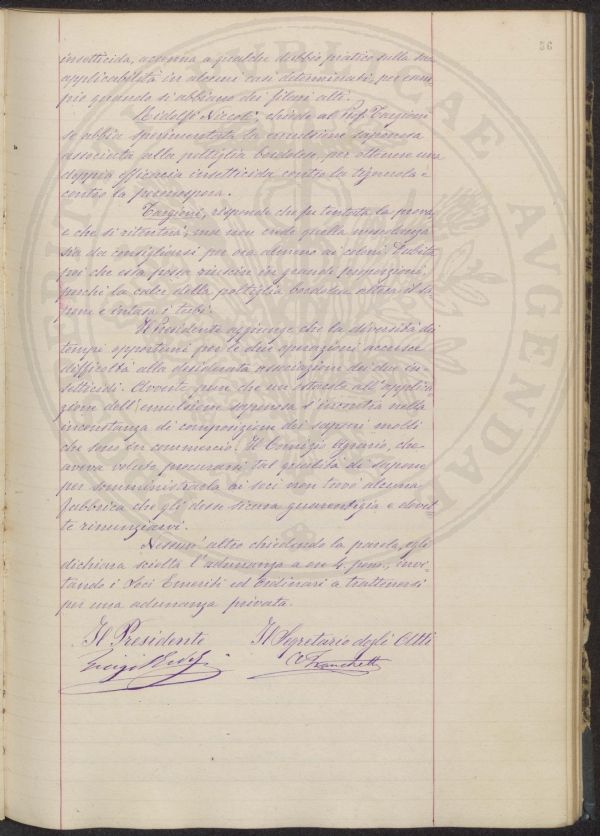 36
insetticida, accenna a qualche dubbio pratico sulla sua
applicabilità in alcuni casi determinati, per esem-
pio quando si abbiano dei filari alti.
Ridolfi Niccolò, chiede al Prof. Targioni
se abbia sperimentata la emulsione saponosa
associata alla poltiglia bordolese, per ottenere una
doppia efficacia insetticida contro la tignuola e
contro la peronospora.
Targioni, risponde che fu tentata la prova,
e che si ritenterà, ma non crede quella mescolanza
sia da consigliarsi per ora almeno ai coloni. Dubita
poi che essa possa riuscire in grandi proporzioni,
perchè la calce della poltiglia bordolese altera il sa-
pone e intasa i tubi.
Il Presidente aggiunge che la diversità dei
tempi opportuni per le due operazioni accresce
difficoltà alla desiderata associazione dei due in-
setticidi. Avverte pure che un ostacolo all'applica-
zione dell'emulsione saponosa s'incontra nella
incostanza di composizione dei saponi molli
che sono in commercio. Il Comizio Agrario, che
aveva voluto procurarsi tal qualità di sapone
per somministrarla ai soci non trovò alcuna
fabbrica che gli desse sicura guarentigia e dovet-
te rinunziarvi.
Nessun' altro chiedendo la parola, egli
dichiara sciolta l'adunanza a ore 4 pom., invi-
tando i Soci Emeriti ed Ordinari a trattenersi
per una adunanza privata.
Il Presidente Il Segretario degli Atti
Franchetti